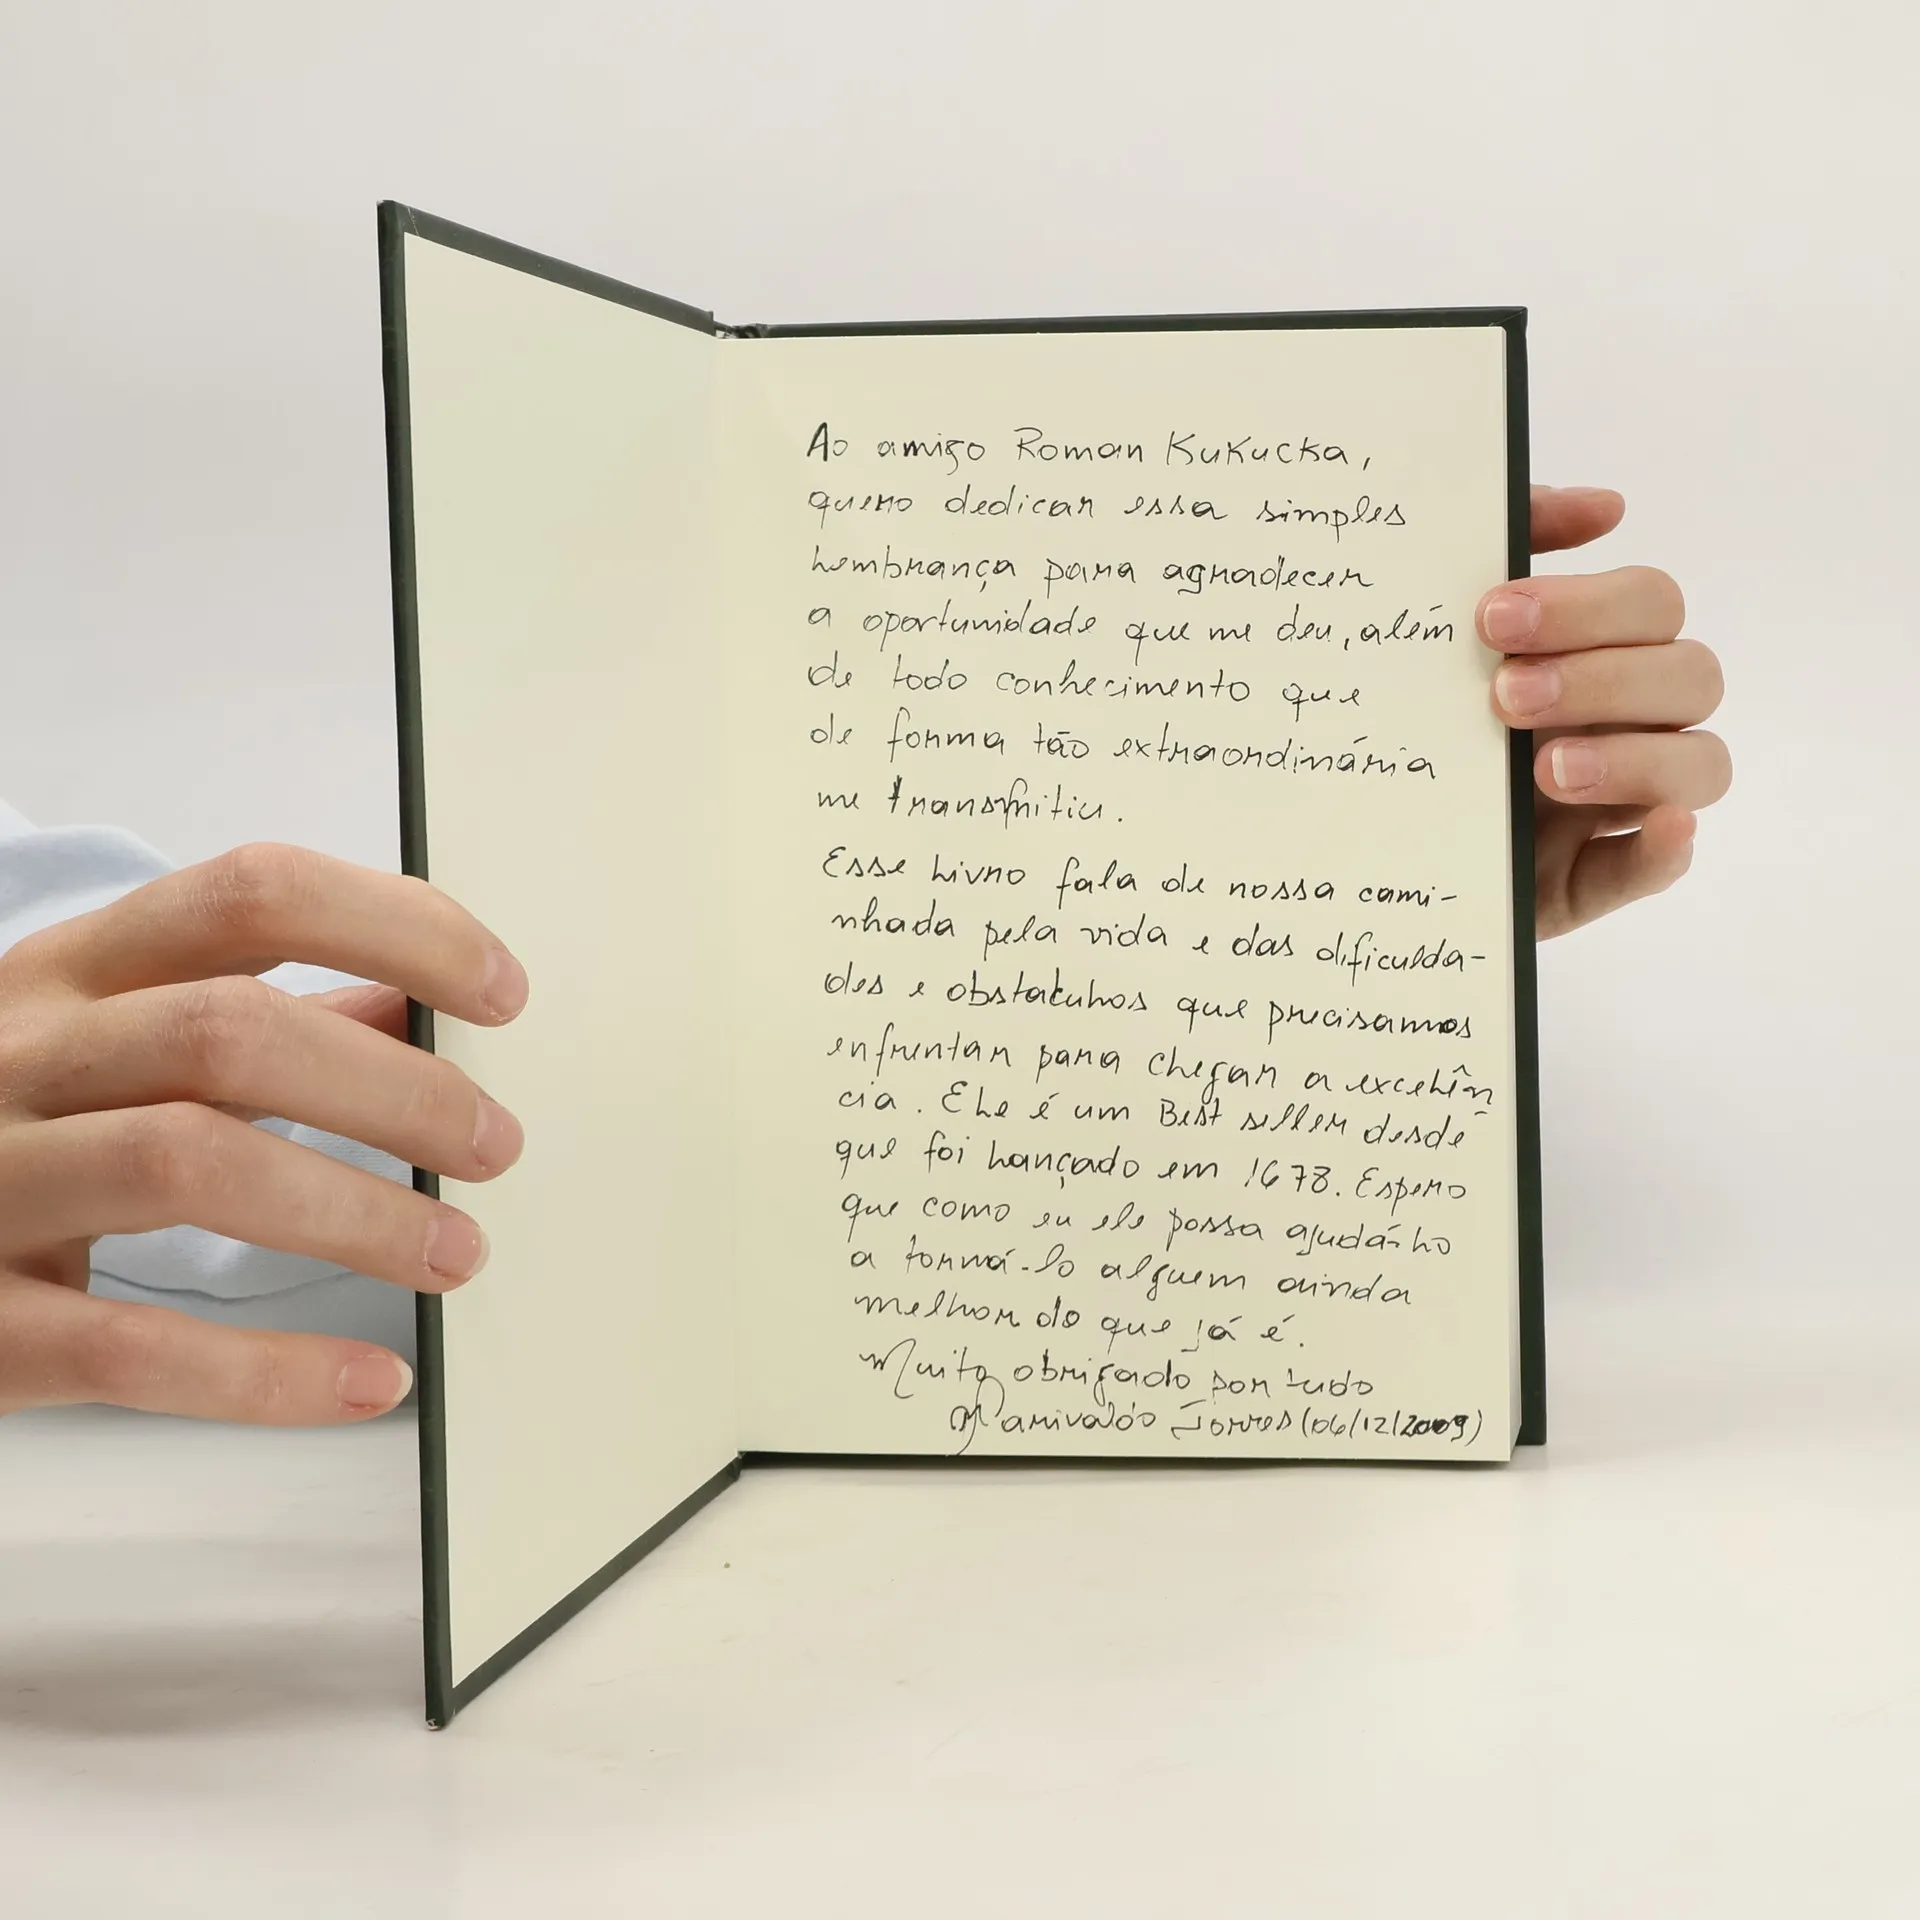 Ao amigo Roman Kukucka,
quero dedicar essa simples
lembrança para agradecer
a oportunidade que me deu, além
de todo conhecimento que
de forma tão extraordinária
me transmitiu.
Esse livro fala de nossa cami-
nhada pela vida e das dificulda-
des e obstatulos que precisamos
enfrentar para chegar a excelên
cia. Ele é um Best seller desde
que foi lançado em 1678. Espero
que como eu ele possa ajudá-lo
a torná-lo alguem ainda
melhor do que já é.
Muito obrigado por tudo
Marivaldo Torres (06/12/2009)